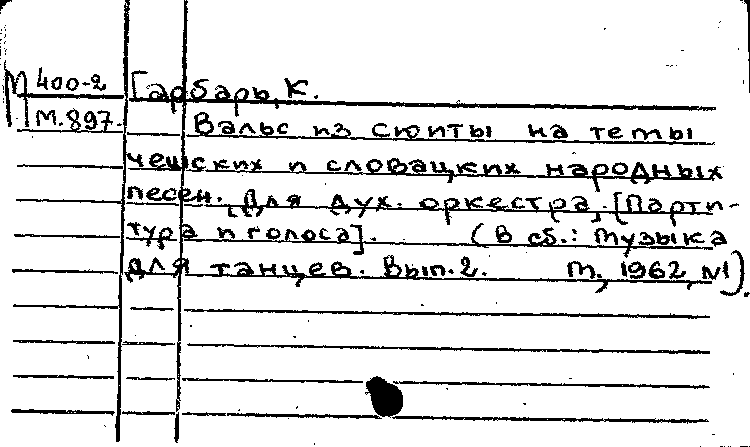 М 400-2 Гарбарь, К.
М.897. Вальс из сюиты на темы
чешских и словацких народных
песен. [Для дух. оркестра]. [Парти-
тура и голоса]. (В сб.: Музыка
для танцев. Вып. 2. М., 1962, №1).